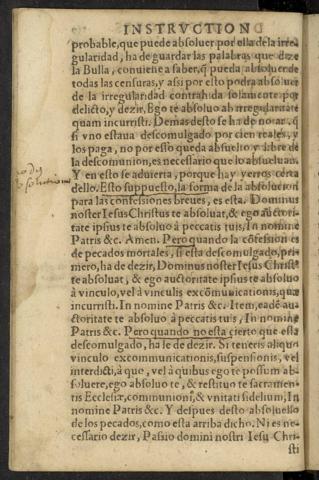 INSTRVCTION
probable, que puede absoluer por ella de la irre
gularidad, ha de guardar las palabras que dize
la Bulla, conuiene a saber, q̃ pueda absoluer de
todas las censuras, y assi por esto podra absoluer
de la irregularidad contrahida solamente por
delicto, y dezir, Ego te absoluo ab irregularitate
quam incurristi. Demas desto se ha de notar, q̃
si vno estaua descomulgado por cien reales, y
los pago, no por esso queda absuelto y libre de
la descomunion, es necessario que lo absueluan.
Y en esto se aduierta, porque hay yerros cerca
dello. Esto supuesto, la forma de la absolucion
para las confessiones breues, es esta. Dominus
noster Iesus Christus te absoluat, & ego auctori-
tate ipsius te absoluo à peccatis tuis, In nomine
Patris &c. Amen. Pero quando la cõfession es
de pecados mortales, si esta descomulgado, pri-
mero, ha de dezir, Dominus noster Iesus Christ9
te absoluat, & ego auctoritate ipsius te absoluo
à vinculo, vel à vinculis excõmunicationis, quã
incurristi. In nomine Patris &c. Item, eadẽ au-
ctoritate te absoluo à peccatis tuis, In nomine
Patris &c. Pero quando no esta cierto que esta
descomulgado, ha le de dezir. Si teneris aliquo
vinculo excommunicationis, suspensionis, vel
interdicti, à que, vel à quibus ego te possum ab-
soluere, ego absoluo te, & restituo te sacramen-
tis Ecclesiæ, communionis, & vnitati fidelium, In
nomine Patris &c. Y despues desto absoluello
de los pecados, como esta arriba dicho. Ni es ne-
cessario dezir, Passio domini nostri Iesu Chri-
sti